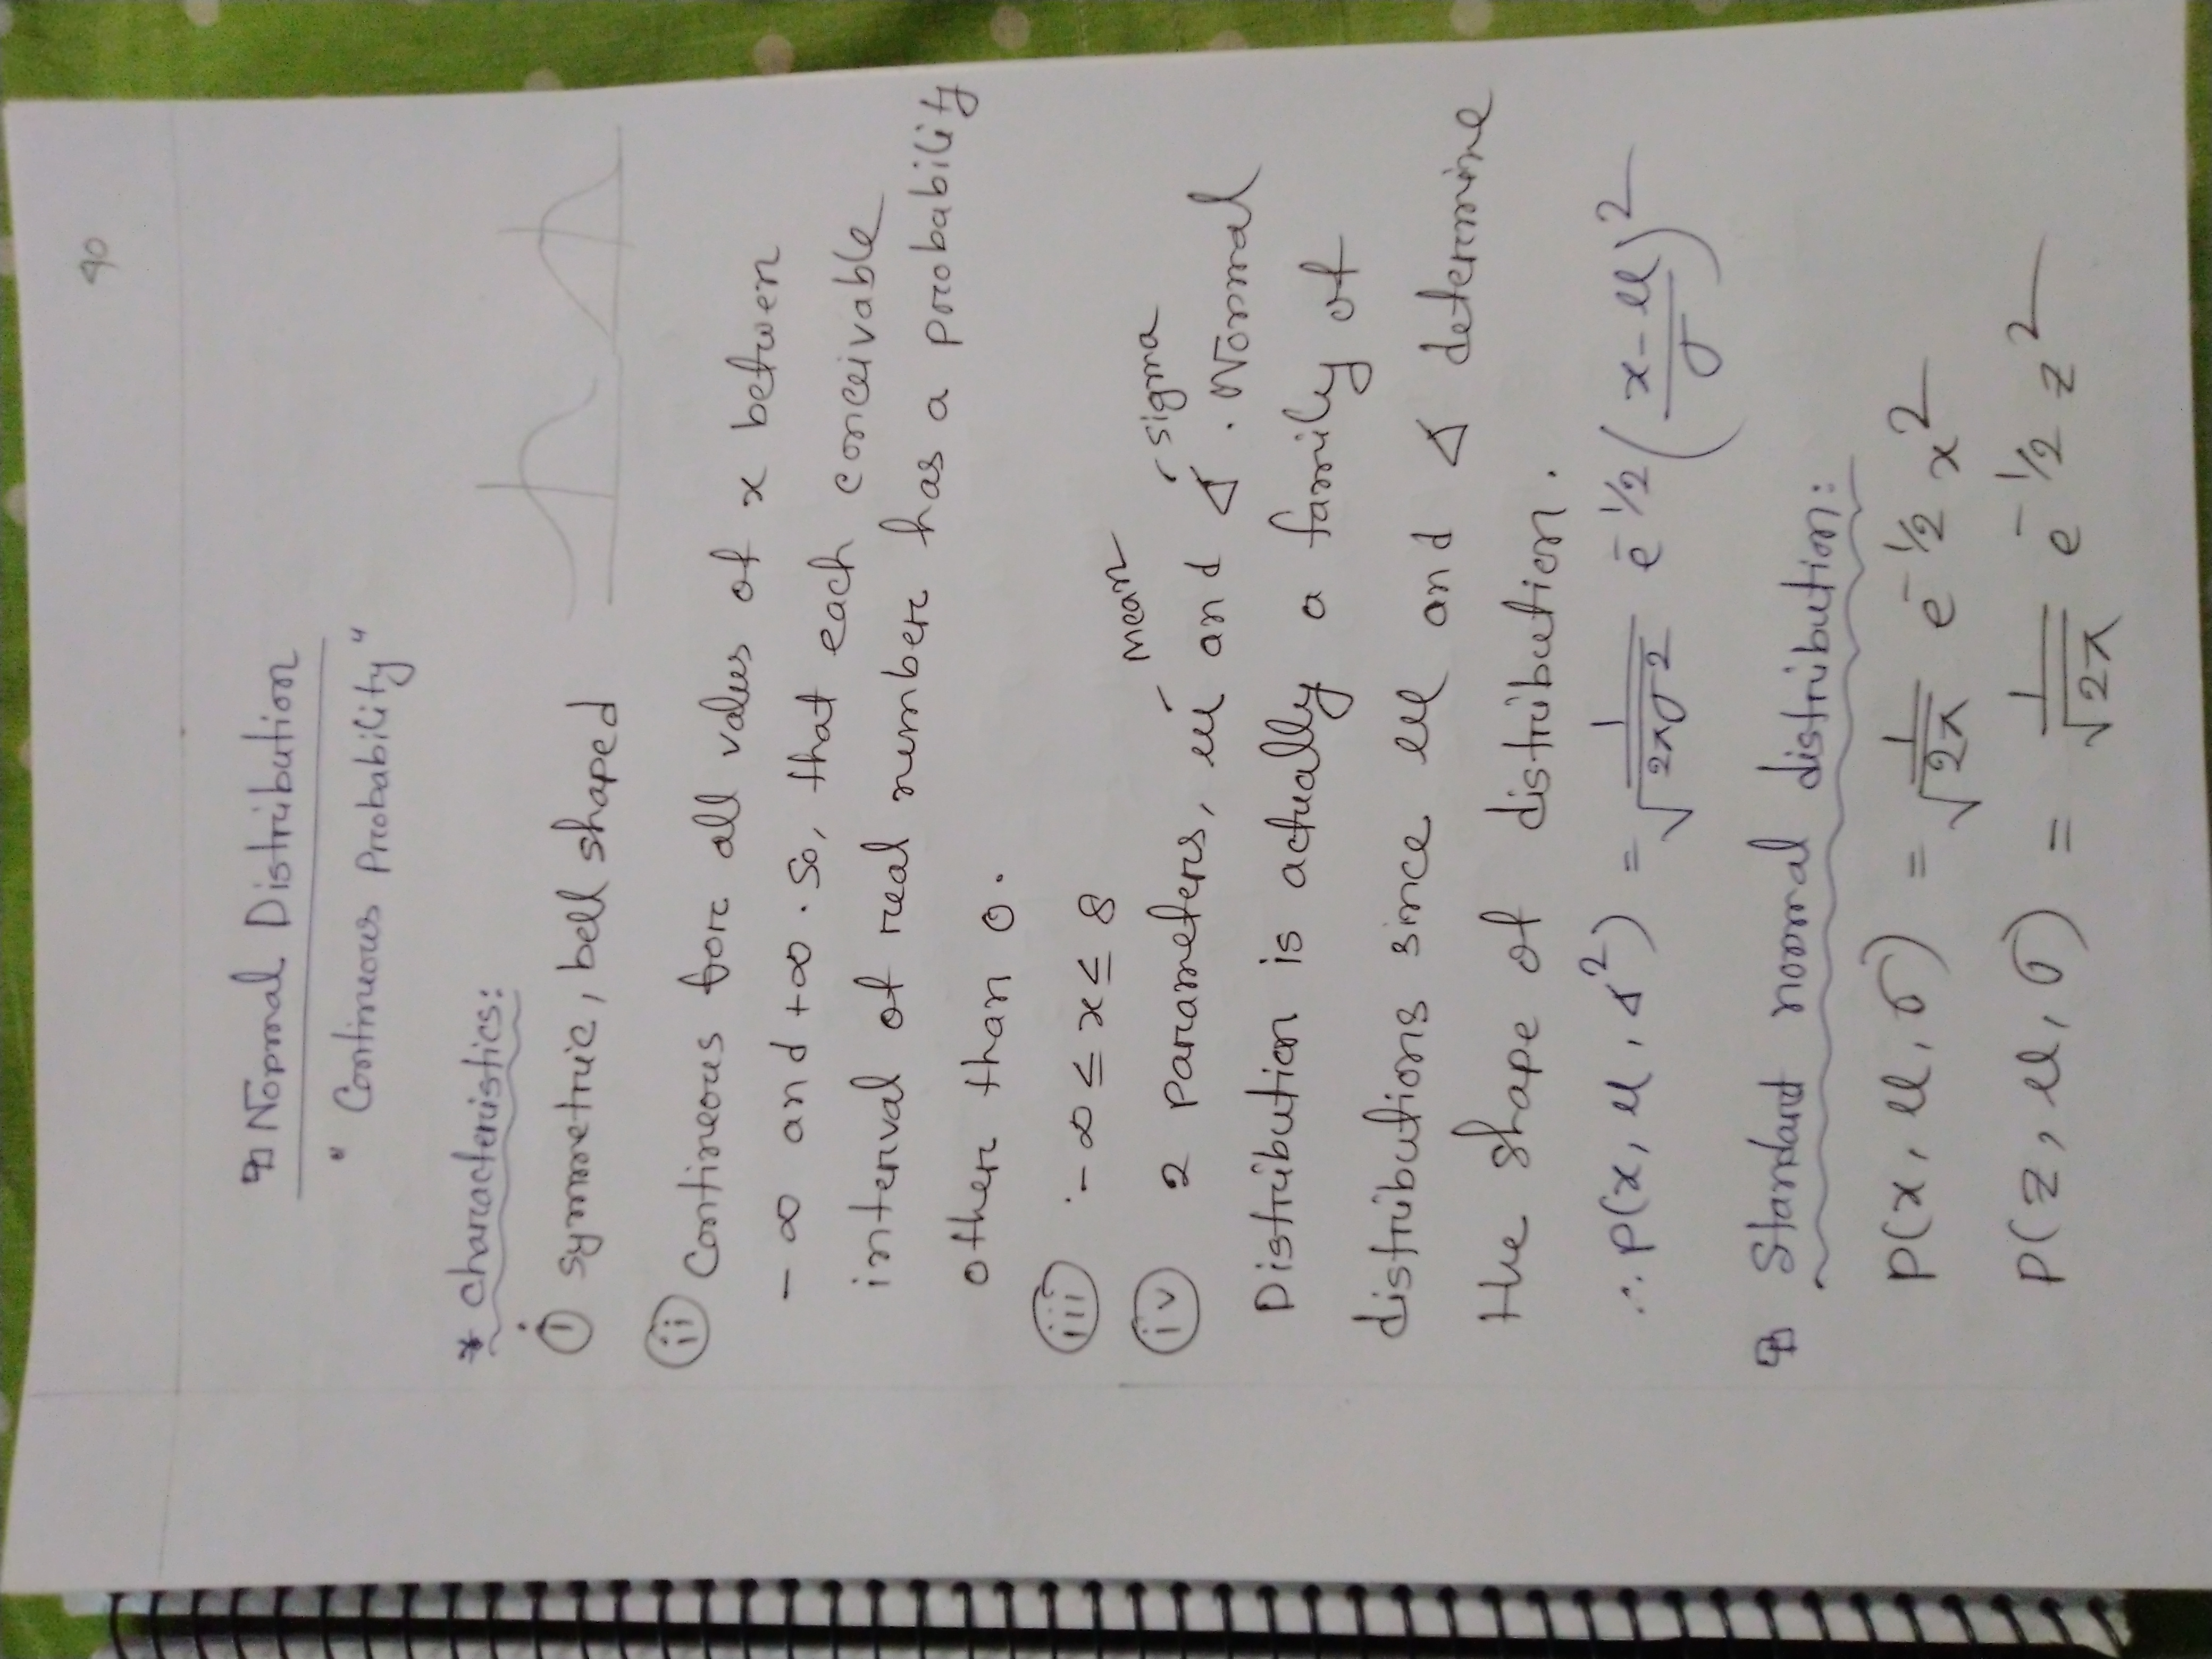 90
Normal Distribution
"Continuous Probability"
* Characteristics:
(i) Symmetric, bell shaped
(ii) Continuous for all values of x between
-∞ and +∞. So, that each conceivable
interval of real number has a probability
other than 0.
(iii) -∞ ≤ x ≤ 8
mean sigma
(iv) 2 parameters, μ and σ. Normal
Distribution is actually a family of
distributions since μ and σ determine
the shape of distribution.
∴ p(x, μ, σ²) = 1/√2πσ² e^-1/2 (x-μ/σ)²
Standard normal distribution:
p(x, μ, σ) = 1/√2π e^-1/2 x²
p(z, μ, σ) = 1/√2π e^-1/2 z²